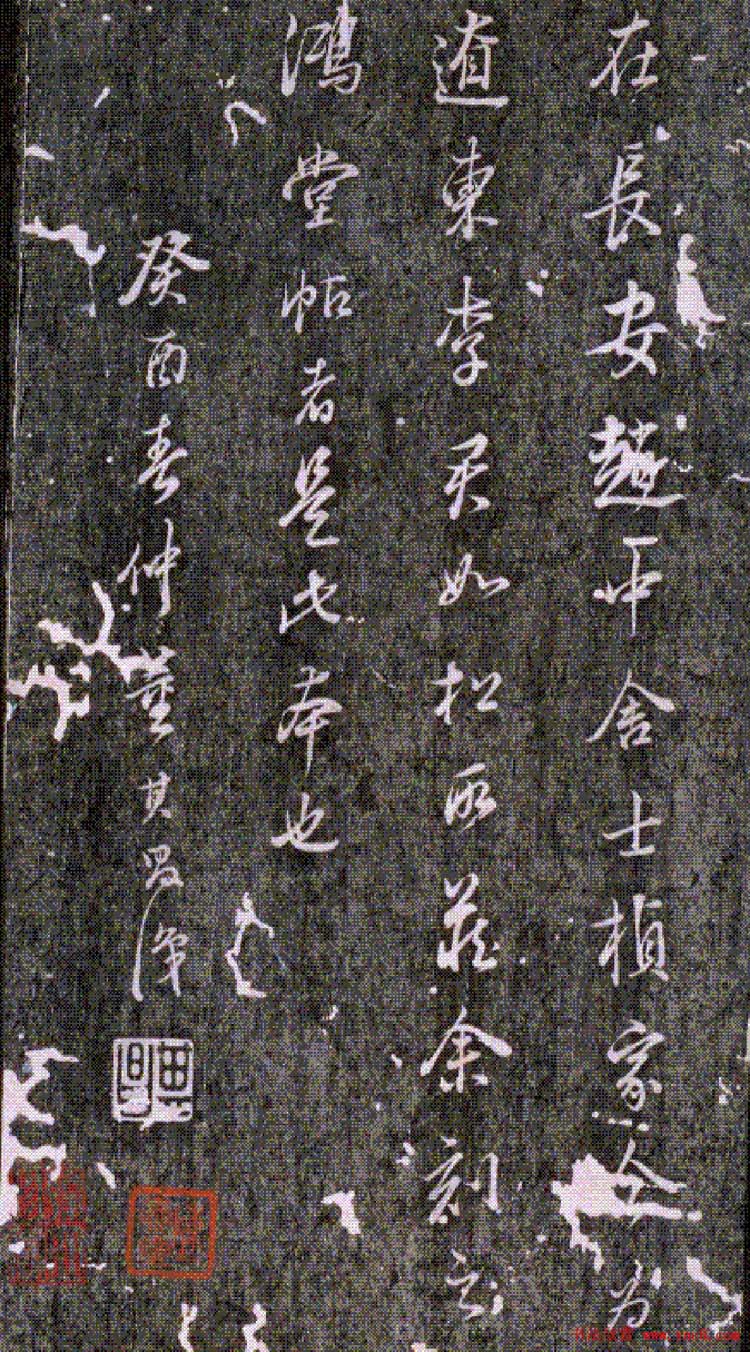 在長安趙中舍士楨家今為
遼東李君如松所藏余刻戲
鴻堂帖者是此本也
癸酉春仲董其昌